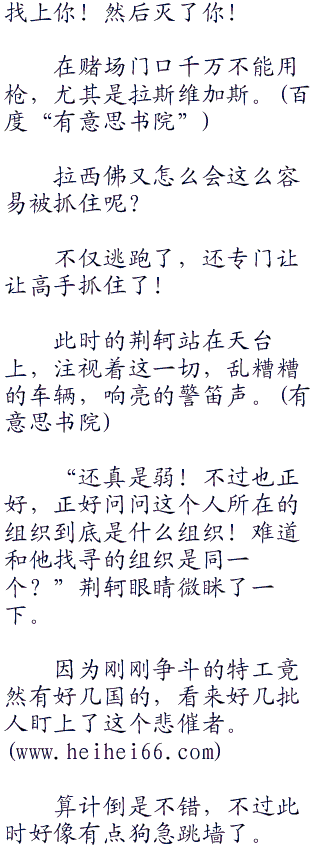 找上你！然后灭了你！
在赌场门口千万不能用
枪，尤其是拉斯维加斯。(百
度“有意思书院”)
拉西佛又怎么会这么容
易被抓住呢？
不仅逃跑了，还专门让
让高手抓住了！
此时的荆轲站在天台
上，注视着这一切，乱糟糟
的车辆，响亮的警笛声。(有
意思书院)
“还真是弱！不过也正
好，正好问问这个人所在的
组织到底是什么组织！难道
和他找寻的组织是同一
个？”荆轲眼睛微眯了一
下。
因为刚刚争斗的特工竟
然有好几国的，看来好几批
人盯上了这个悲催者。
(www.heihei66.com)
算计倒是不错，不过此
时好像有点狗急跳墙了。